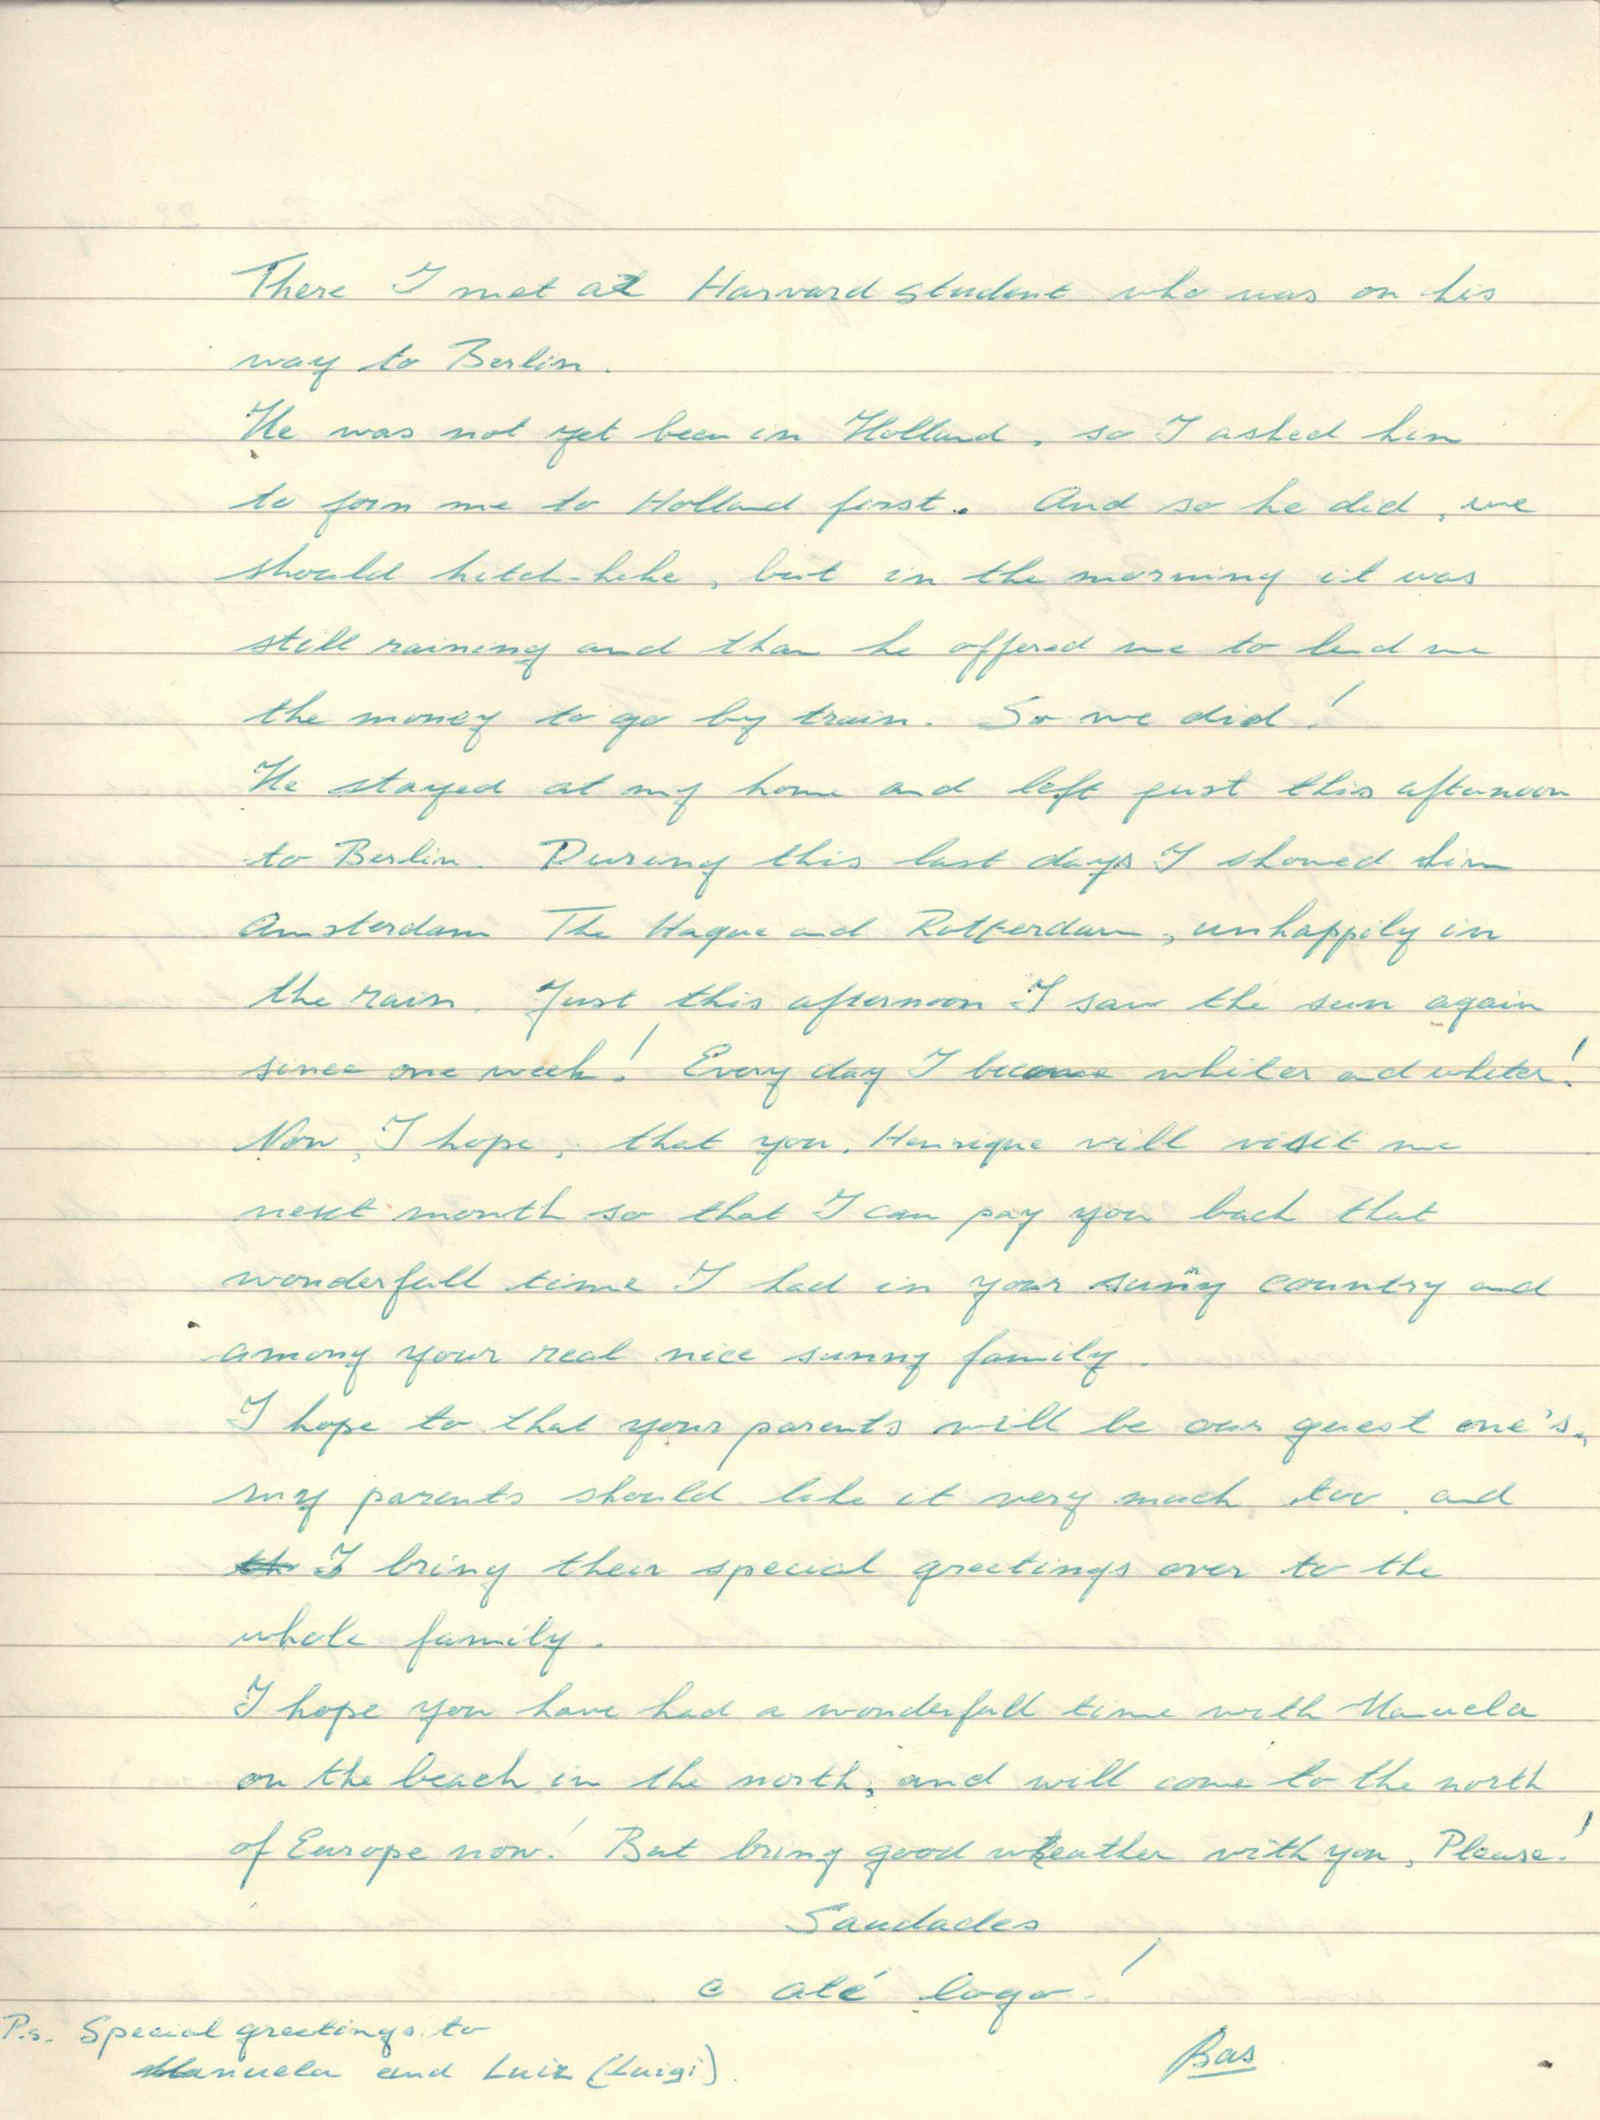 There I met a Harvard student who was on his
way to Berlin.
He was not yet been in Holland, so I asked him
to join me to Holland first. And so he did, we
should hitch-hike, but in the morning it was
still raining and than he offered me to lend me
the money to go by train. So we did!
He stayed at my home and left just this afternoon
to Berlin. During this last days I showed him
Amsterdam The Hague and Rotterdam, unhappily in
the rain. Just this afternoon I saw the sun again
since one week! Every day I become whiter and whiter!
Now, I hope, that you, Henrique will visit me
next month so that I can pay you back that
wonderfull time I had in your suñy country and
among your real nice sunny family.
I hope to that your parents will be our guest one's,
my parents should like it very much too, and
th I bring their special greetings over to the
whole family.
I hope you have had a wonderfull time with Manuela
on the beach in the north, and will come to the north
of Europe now! But bring good weather with you, Please!
Saudades
e até logo!
P.s. Special greetings to
Manuela and Luiz (Luigi).
Bas